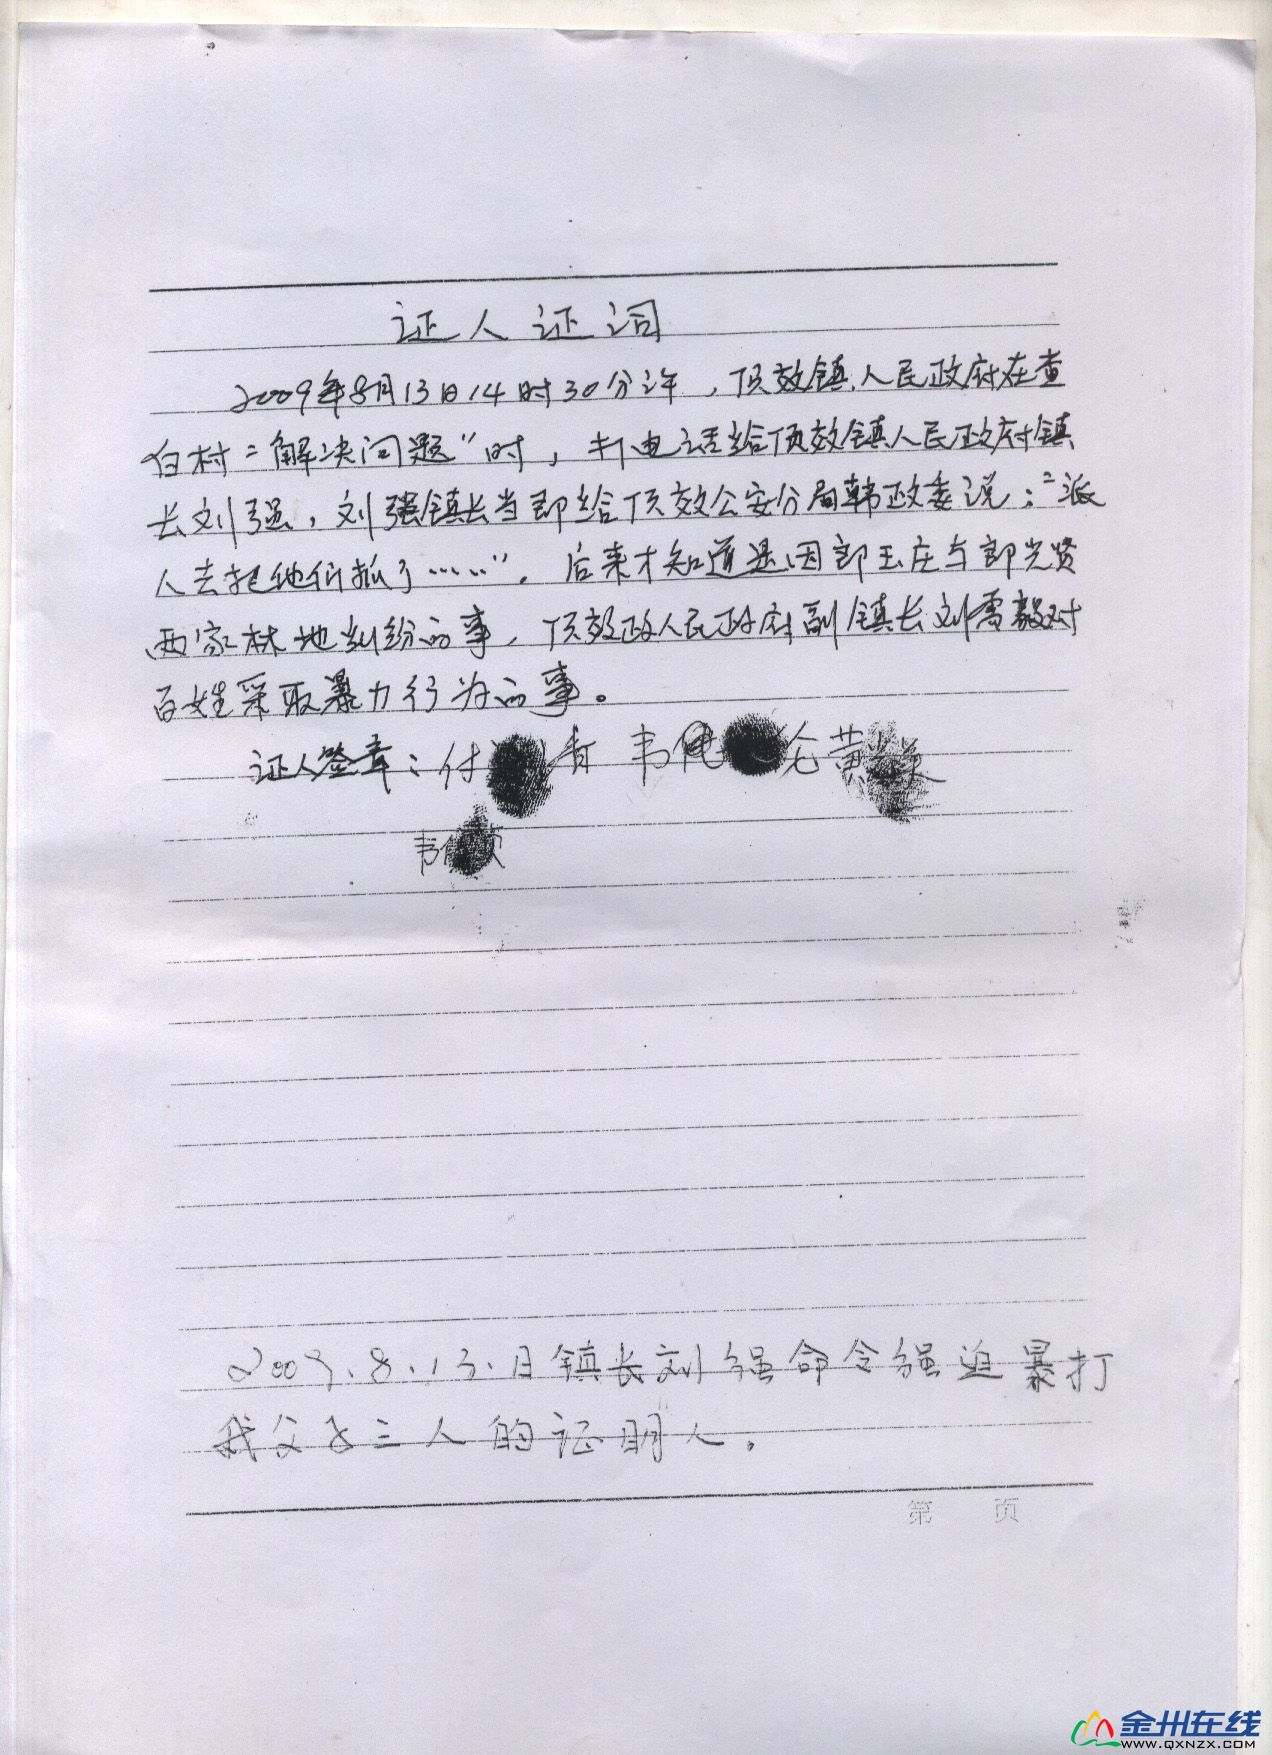 证人证词
2009年8月13日14时30分许，顶效镇人民政府在查
白村“解决问题”时，打电话给顶效镇人民政府镇
长刘强，刘强镇长当即给顶效公安分局韩政委说：“派
人去把他们抓了……”。后来才知道是因郎玉庄与郎光贤
两家林地纠纷的事，顶效政人民政府副镇长刘雳毅对
百姓采取暴力行为的事。
证人签章：付 韦 黄
韦
2009.8.13.日镇长刘强命令强迫暴打
我父子三人的证明人。
第 页
金州在线
WWW.QXNZX.COM